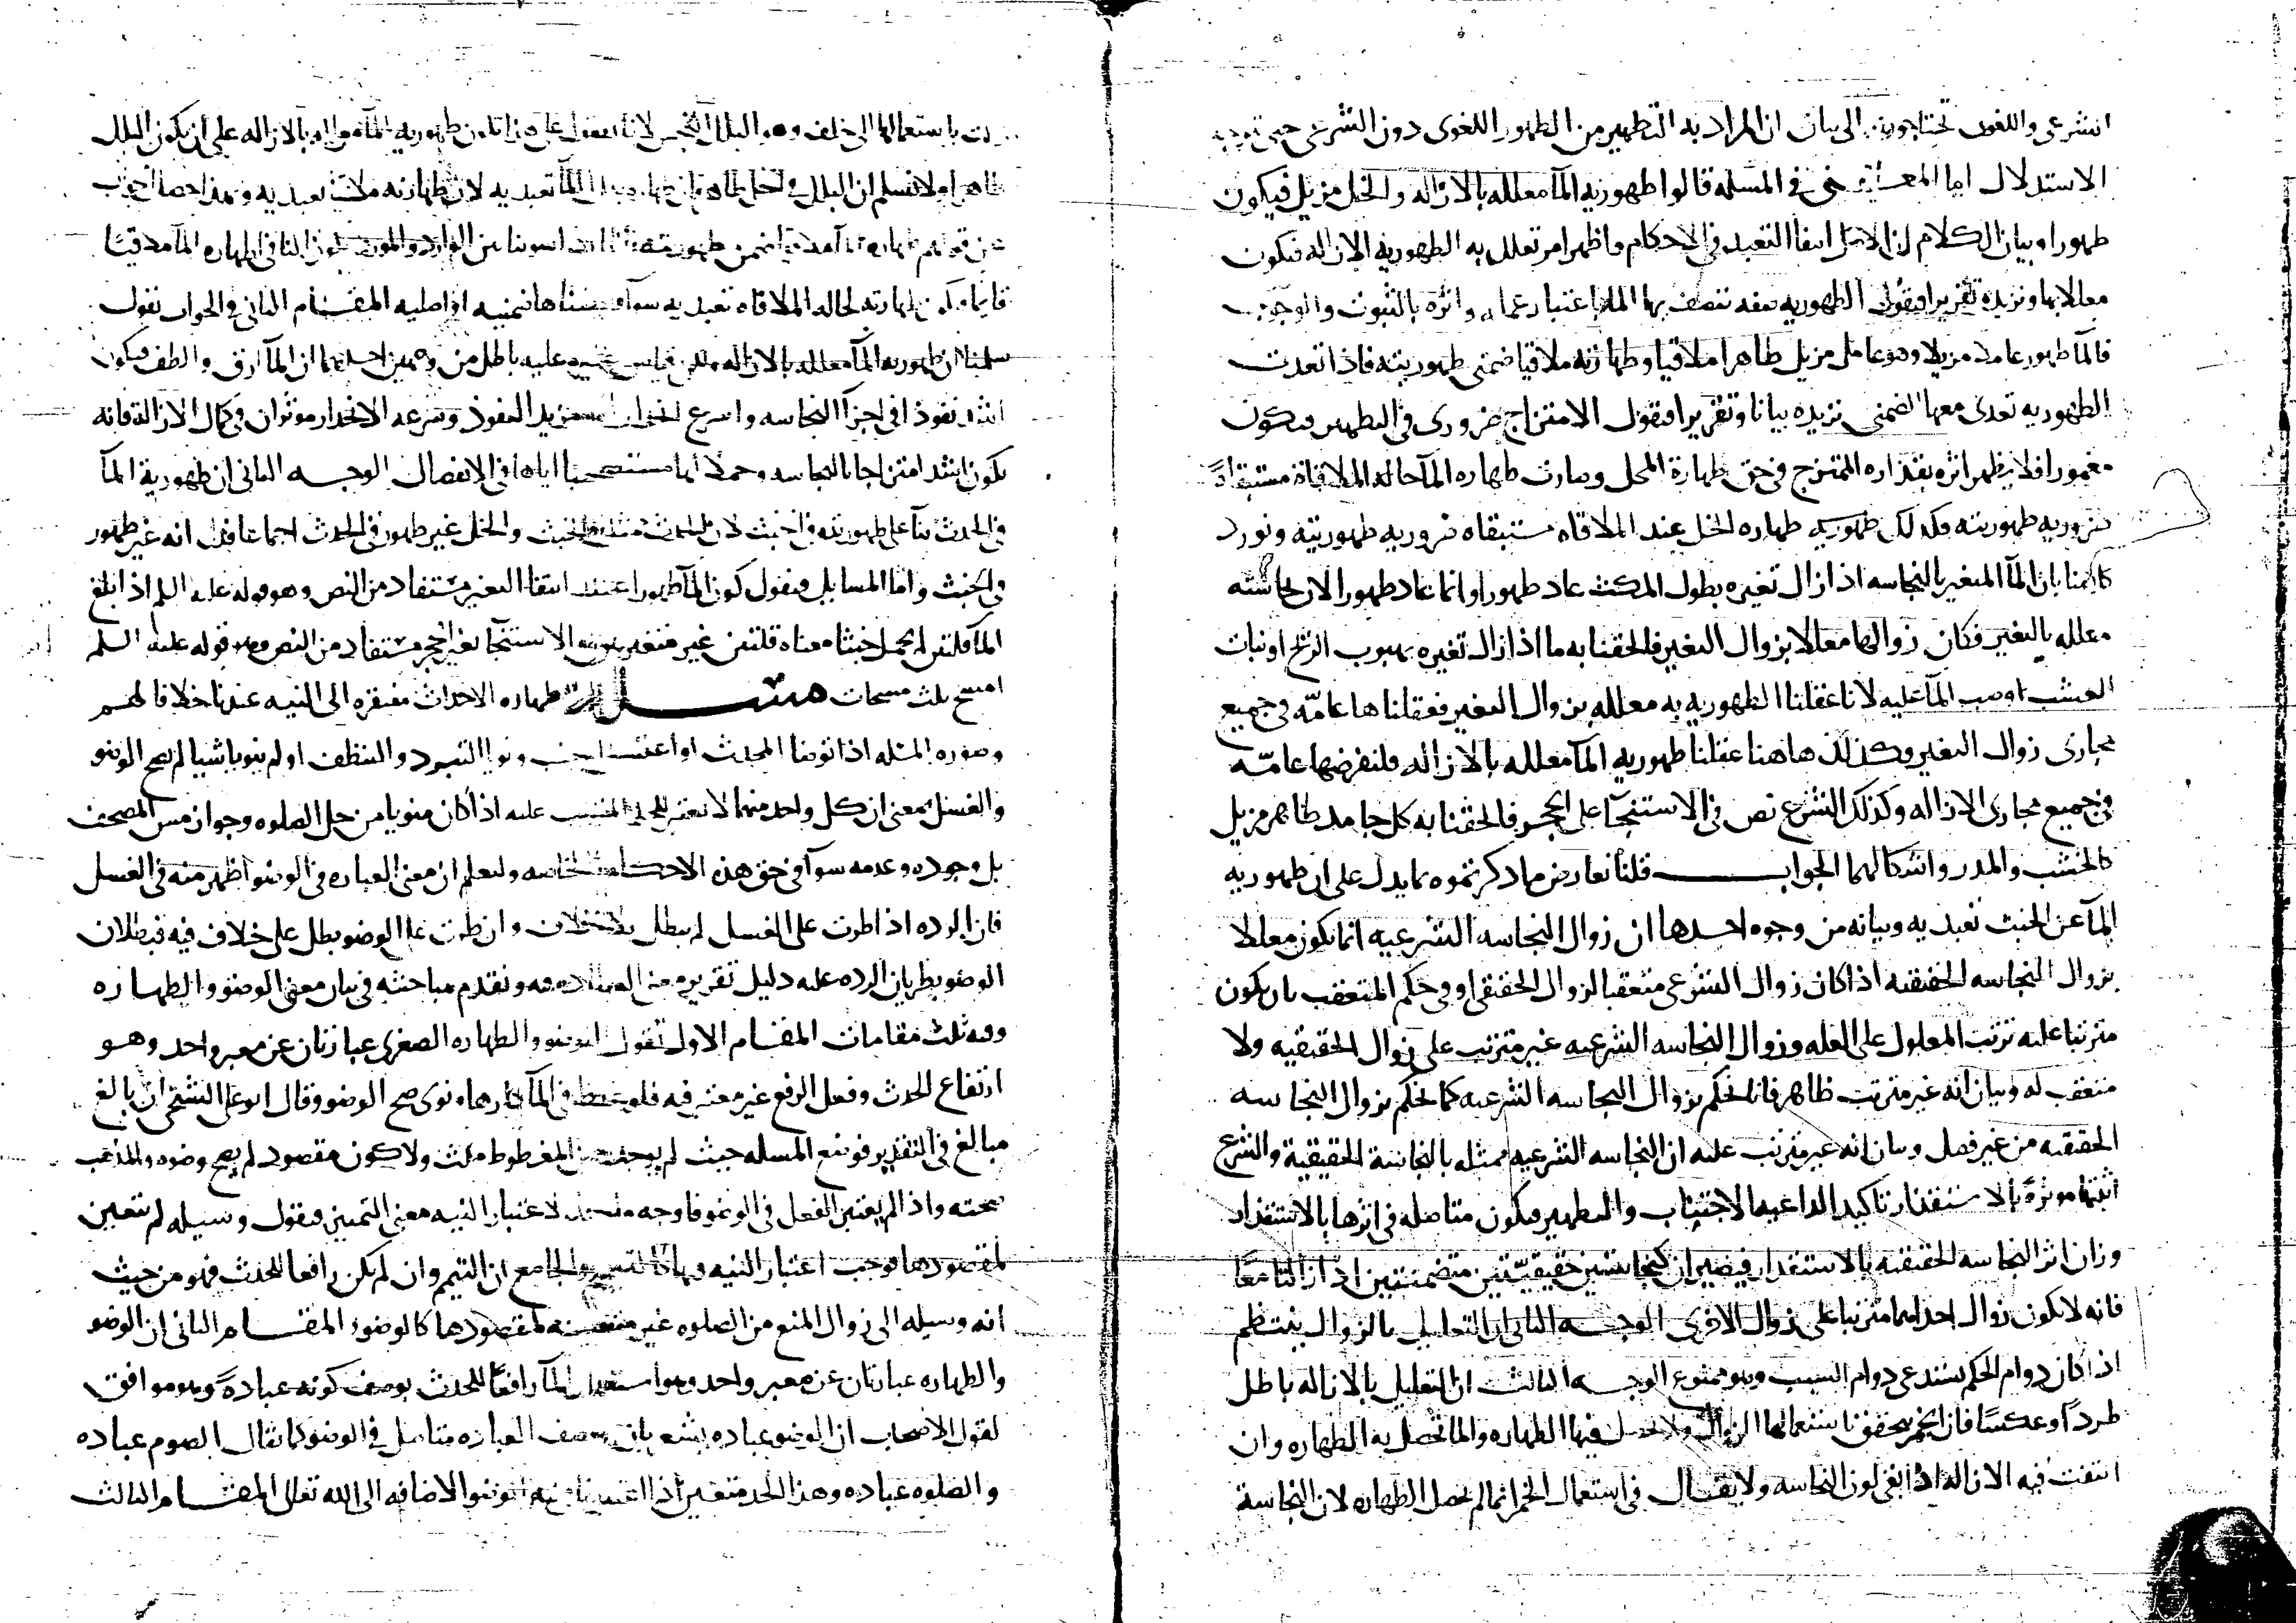 الشرعى واللغوى تحتاجون الى بيان ان المراد به التطهير من الطهور اللغوى دون الشرعى حتى
الاستدلال اما فى المسله قالوا طهوريه المآ معلله بالازاله والخل مزيل فيكون
طهورا وبيان الكلام ان الاصل انتفا التعبد فى الاحكام واظهر امر تعلل به الطهوريه الازاله فتكون
معللا بها ونزيده تقريرا فنقول الطهوريه صفه تتصف بها المآ باعتبار واثره بالثبوت والوجوب
فالمآ طهور عاملا مزيلا وهو عامل مزيل طاهرا ملاقيا وطهارته ملاقيا ضمنى طهوريته فاذا تعدت
الطهوريه تعدى معها الضمنى نزيده بيانا وتقريرا فنقول الامتزاج ضرورى فى التطهير فيكون
مغمورا فلا يظهر اثره بقذاره الممتزج فى حق طهارة المحل وصارت طهاره المآ حاله الملاقاة مستبقاة
ضروريه طهوريته فكذلك طهاره الخل عند الملاقاه مستبقاه ضروريه طهوريته ونورد
بان المآ المتغير بالنجاسه اذا زال تغيره بطول المكث عاد طهورا وانما عاد طهورا لان نجاسته
معلله بالتغير فكان زوالها معللا بزوال التغير فالحقنا به ما اذا زال تغيره بهبوب الريح او نبات
العشب اوصب المآ عليه لانا عقلنا الطهوريه به معلله بزوال التغير فعقلناها عامّه فى جميع
مجارى زوال التغير وكذلك هاهنا عقلنا طهوريه المآ معلله بالازاله فلنفرضها عامّه
فى جميع مجارى الازاله وكذلك الشرع نص فى الاستنجآ على الحجر فالحقنا به كل جامد طاهر مزيل
كالخشب والمدر واشكالهما الجواب قلنا نعارض ما ذكرتموه بما يدل على ان طهوريه
المآ عن الخبث تعبديه وبيانه من وجوه احدها ان زوال النجاسه الشرعيه انما يكون معللا
بزوال النجاسه الحقيقيه اذا كان زوال الشرعى متعقبا لزوال الحقيقى او فى حكم المتعقب بان يكون
مترتبا عليه ترتب المعلول على العله وزوال النجاسه الشرعيه غير مترتب على زوال الحقيقيه ولا
متعقب له وبيان انه غير مترتب ظاهر فانا نحكم بزوال النجاسه الشرعيه كما نحكم بزوال النجاسه
الحقيقيه من غير فصل وبيان انه غير مترتب عليه ان النجاسه الشرعيه ممثله بالنجاسة الحقيقية والشرع
اثبتها موثرة بالاستقذار تاكيد الداعيه الاجتناب والتطهير فيكون متاصله فى اثرها بالاستقذار
وزان اثر النجاسه الحقيقيه بالاستقذار فيضيران كنجاستين حقيقيّتين متضمنتين اذا زالتا معًا
فانه لا يكون زوال احداهما مترتبا على زوال الاخرى الوجه الثانى ان التعليل بالزوال ينتظم
اذا كان دوام الحكم يستدعى دوام السبب وهو ممنوع الوجه الثالث ان التعليل بالازاله باطل
طردًا وعكسًا فان الخمر يتحقق باستعمالها الزوال ولا تحصل فيها الطهاره والمآ تحصل به الطهاره وان
انتفت فيه الازاله اذا بقى لون النجاسه ولا يقال فى استعمال الخمر انما لم تحصل الطهاره لان النجاسة
باستعمالها الى خلف وهو البلل النجس لانا نقول على هذا تكون طهوريه المآ معلله بالازاله على ان يكون البلل
طاهرا ولا نسلم ان البلل فى الخل طاهر المآ تعبديه لان طهارته تعبديه وبهذا حصل الجواب
عن قولهم طهاره المآ ضمن طهوريته الوارد والمورود
طهارته لحاله الملاقاه تعبديه سوآ ضمنيه او اصليه المقام الثانى فى الجواب نقول
سلمنا ان طهوريه المآ معلله بالازاله ولكن قياس غيره عليه باطل من وجهين احدهما ان المآ ارق والطف فيكون
اشد نفوذا فى اجزآ النجاسه واسرع انحدارا ومزيد النفوذ وسرعه الانحدار موثران فى كمال الازالة فانه
يكون اشد امتزاجا بالنجاسه وحملا لها مستصحبا اياها فى الانفصال الوجه الثانى ان طهورية المآ
فى الحدث بنآ على طهوريته فى الخبث لان الحدث والخبث والخل غير طهور فى الحدث اجماعا فدل انه غير طهور
فى الخبث واما المسايل فنقول كون المآ طهورا عند انتفا التغير مستفاد من النص وهو قوله عليه السلم اذا بلغ
المآ قلتين لم يحمل خبثا معناه قلتين غير متغير الاستنجآ بغير الحجر مستفاد من النص وهو قوله عليه السلم
امسح بثلث مسحات مسله طهاره الاحداث مفتقره الى النيه عندنا خلافا لهم
وصوره المسله اذا توضا المحدث او اغتسل الجنب ونويا التبرد والتنظف او لم ينويا شيا لم يصح الوضو
والغسل بمعنى ان كل واحد منهما لا عليه اذا كان منويا من حل الصلوه وجواز مس المصحف
بل وجوده وعدمه سوآ فى حق هذه الاحكام الخاصه وليعلم ان معنى العباده فى الوضو اظهر منه فى الغسل
فان الرده اذا طرت على الغسل لم يبطل بلا خلاف وان طرت على الوضو بطل على خلاف فيه فبطلان
الوضو بطريان الرده عليه دليل تقرير معنى العباده فيه ونقدم مباحثته فى بيان معنى الوضو والطهاره
وفيه ثلث مقامات المقام الاول نقول الوضو والطهاره الصغرى عبارتان عن معبر واحد وهو
ارتفاع الحدث وفعل الرفع غير معتبر فيه فلو غط فى المآ كارها ونوى صح الوضو وقال ابو على الشيخى ان بالغ
مبالغ فى التقدير فوضع المسله حيث لم يوجد من المغطوط مكث ولا كون مقصود لم يصح وضوه والمذهب
صحته واذا لم يعتبر الفعل فى الوضو فاوجه لاعتبار النيه معنى التمييز فنقول وسيله لم تتعين
لمقصودها فوجب اعتبار النيه فيها كالتيمم والجامع ان التيمم وان لم يكن رافعا للحدث فهو من حيث
انه وسيله الى زوال المنع من الصلوه غير متعينه لمقصودها كالوضوء المقام الثانى ان الوضو
والطهاره عبارتان عن معبر واحد وهو استعمال المآ رافعا للحدث بوصف كونه عبادةً وهو موافق
لقول الاصحاب ان الوضو عباده يشعر بان وصف العباده متاصل فى الوضو كما يقال الصوم عباده
والصلوه عباده وهذا الحد متغير اذا الوضو الاضافه الى الله تعالى المقام الثالث